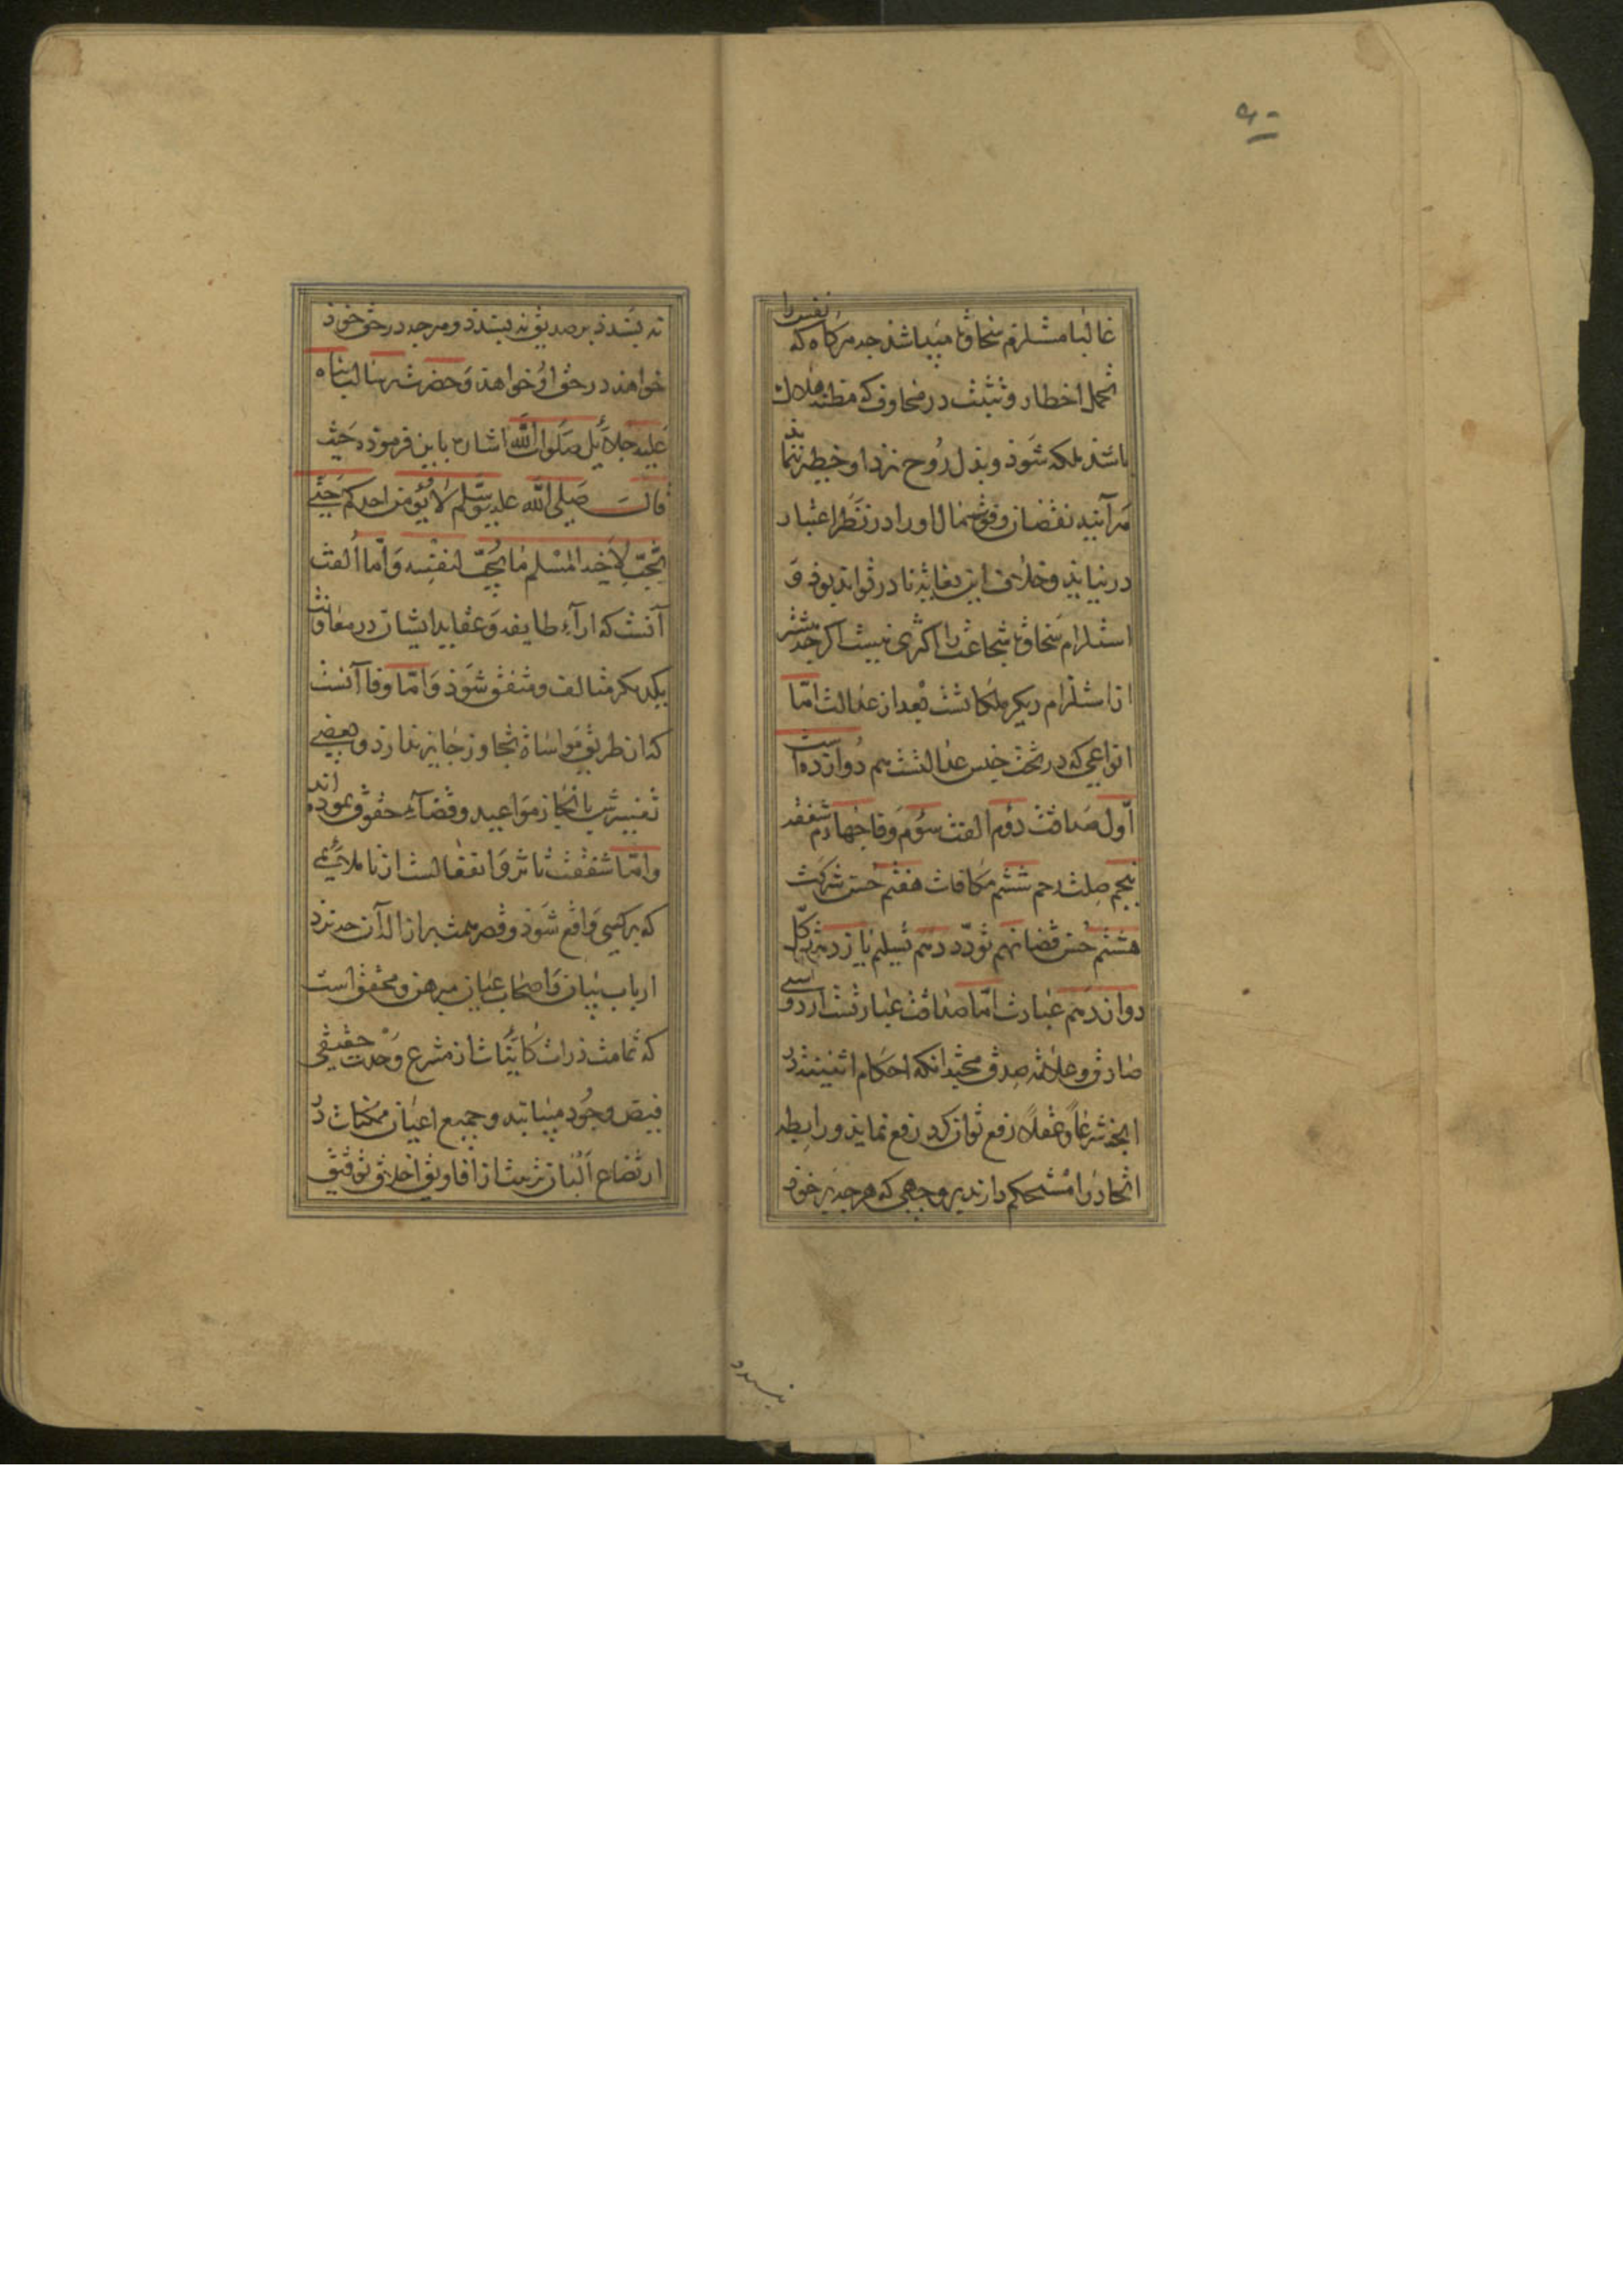 ۹۰
غالبا مستلزم سخاوة میباشد چه هرکاه که نفس را
تحمل اخطار و تثبت در مخاوف که مظنه هلاك
باشد ملکه شوذ و بذل روح نزد او خطیر ننماید
هرآینه نقصان و فوت مال اورا در نظر اعتبار
در نیاید و خلاف این بغایة نادر تواند بوذ و
استلزام سخاوة شجاعت را اکثری نیست اکرچه بیشتر
از استلزام دیکر ملکاتست بعد از عدالت امّا
انواعی که در تحت جنس عدالتست هم دوازده است
اوّل صداقت دوُم الفت سوُم وفا چهارم شفقت
پنجم صلت رحم ششم مکافات هفتم حسن شرکت
هشتم حسن قضا نهم تودّد دهم تسلیم یازدهم توکّل
دوازدهم عبادت امّا صداقت عبارتست از دوستی
صادق و علامة صدق محبّة انکه احکام اثنینیت در
انچه شرعًا و عقلًا رفع توان کرد رفع نماید و رابطه
اتحاد را مستحکم دارند بر وجهی که هرچه بر خود
نپسندد
نه پسندذ بر صدیق نه پسندذ و هرچه در حق خوذ
خواهند در حق او خواهند و حضرت رسالت پناه
علیه جلائل صلوات الله اشارت باین فرموده حیث
قال صلی الله علیه وسلم لا یؤمن احدکم حتی
یحبّ لاخیه المسلم ما یحبّ لنفسه و امّا الفت
آنست که ارآء طایفه و عقاید ایشان در معاونت
یکدیکر متالف و متفق شوذ و امّا وفا آنست
که از طریق مواساة تجاوز جایز ندارد و بعضی
تفسیرش بانجاز مواعید و قضاء حقوق نموده اند
و امّا شفقت تاثر و انفعالست از ناملایمی
که بر کسی واقع شوذ و قصر همت بر ازالة آن چه نزد
ارباب بیان و اصحاب عیان مبرهن و محقق است
که تمامت ذرات کاینات از مشرع وحدت حقیقی
فیض وجود میابند و جمیع اعیان ممکنات در
ارتضاع البان تربیت از افاویق اخلاق توفیق